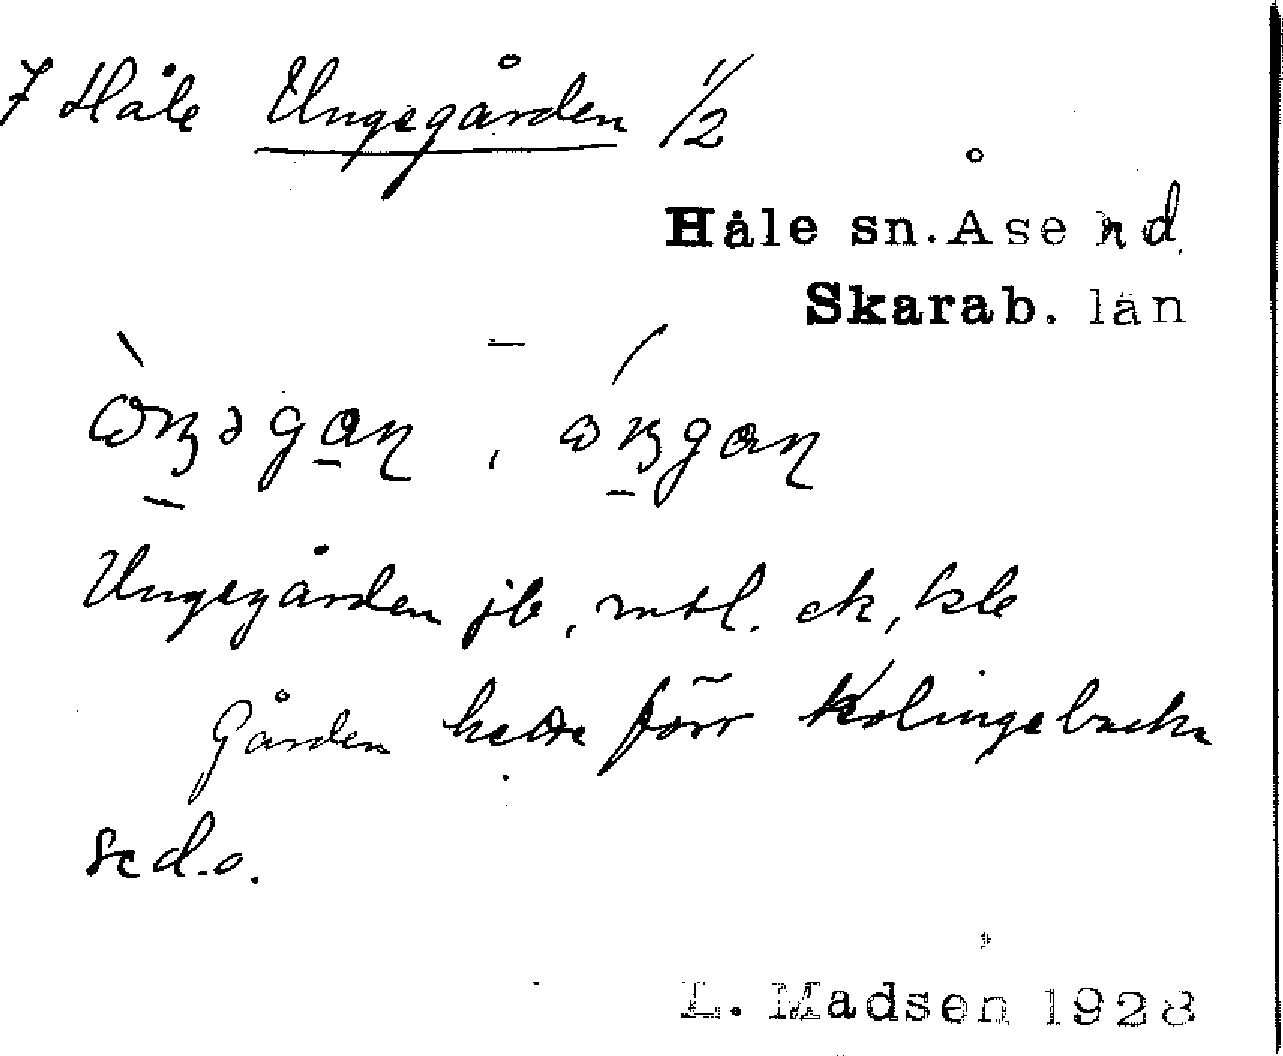 7 Håle Ungegården 1/2
Håle sn. Åse hd.
Skarab. län
Ungegården jb, mtl. ek, kle
Gården hette förr Kolingebacke
se d.o.
L. Madsen 1928